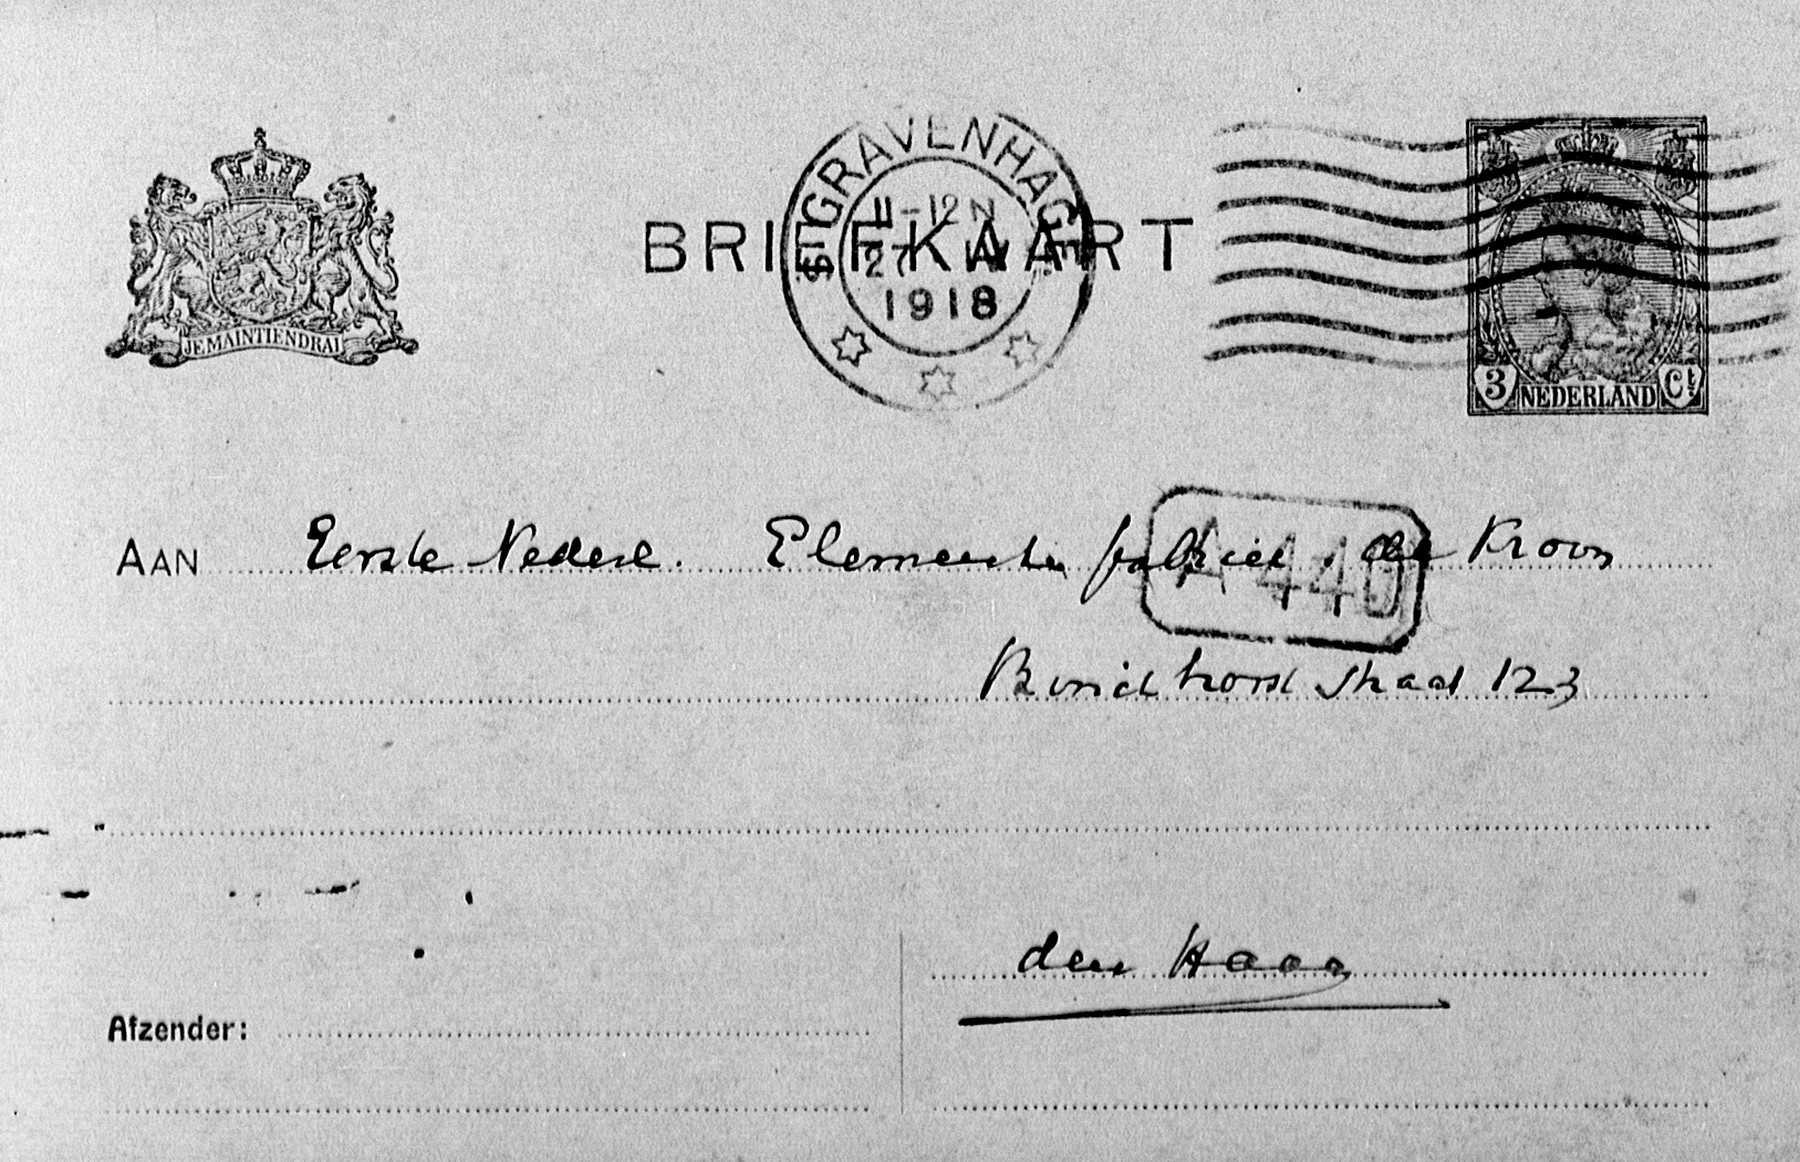 JE MAINTIENDRAI
BRIEFKAART
'S GRAVENHAGE
11-12 N
27
1918
3 NEDERLAND Ct
AAN Eerste Nederl. Elementen fabriek de Kroon
A 440
Bonichhorst straat 123
den Haag
Afzender: